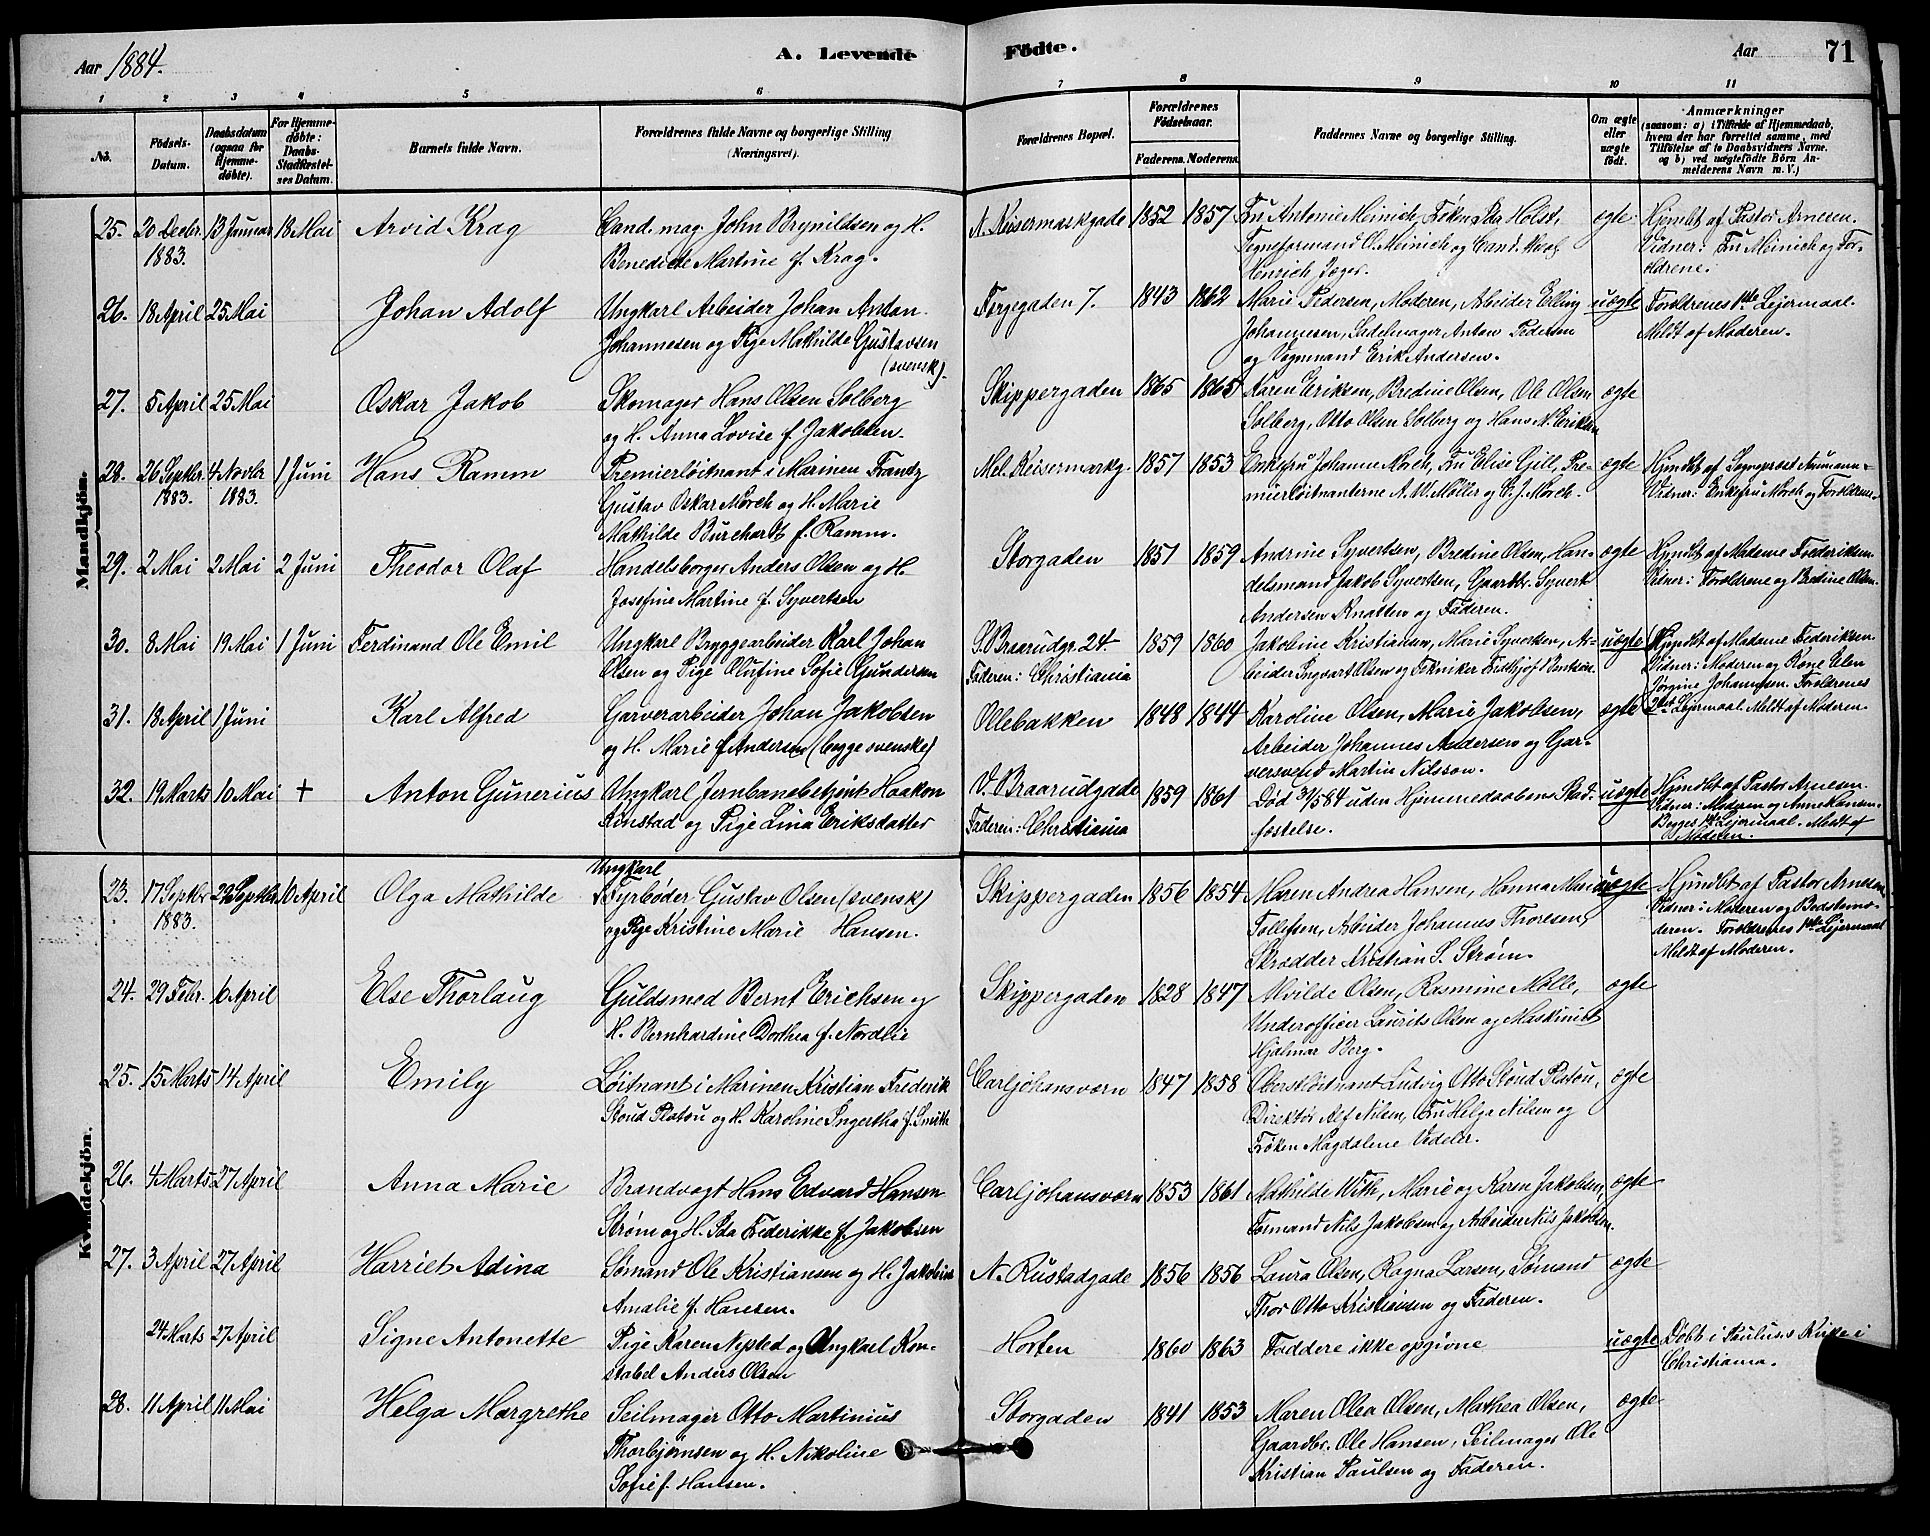 Aar 1884.
A. Levende
Födte.
Aar
71
1
2
3
4
5
6
7
8
9
10
11
No.
Födsels-
Datum.
Daabsdatum
(ogsaa for
Hjemme-
døbte).
For Hjemme-
døbte:
Daabs-
Stadfæstel-
ses Datum.
Barnets fulde Navn.
Forældrenes fulde Navne og borgerlige Stilling
(Næringsvei).
Forældrenes Bopæl.
Forældrenes
Födselsaar.
Faderens.
Moderens.
Faddernes Navne og borgerlige Stilling.
Om ægte
eller
uægte
født.
Anmærkninger
(saasom: a) i Tilfælde af Hjemmedaab,
hvem der har forrettet samme, med
Tilföielse af to Daabsvidners Navne,
og b) ved uægtefödte Börn An-
melderens Navn m. V.)
Mandkjön.
25. 20 Decbr. 13 Januar 18 Mai Arvid Krag Cand. mag. John Brynildsen og H. N. Keisermarkgade 1852 1857 Fru Antonie Meinich, Frøken Ida Holst, ægte Hjmdbt af Pastor Arnesen.
1883. Benedicte Martine f. Krag. Tegneformand O. Meinich og Cand. Vidner: Fru Meinich og For-
Henrich Jæger. ældrene.
26. 18 April 25 Mai Johan Adolf Ungkarl Arbeider Johan Anton Færgegaden 7. 1843 1862 Marie Pedersen, Moderen, Arbeider Erling uægte Forældrenes 1ste Leiermaal.
Johannesen og Pige Mathilde Gustavsen Johannesen, Sadelmager Anton Pedersen Meldt af Moderen.
(svensk). og Vognmand Erik Andersen.
27. 5 April 25 Mai Oskar Jakob Skomager Hans Olsen Solberg Skippergaden 1865 1865 Karen Eriksen, Bredine Olsen, Ole Olsen ægte
og H. Anna Lovise f. Jakobsen. Solberg, Otto Olsen Solberg og Hans N. Eriksen
28. 26 Septbr. 4 Novbr 1 Juni Hans Ramm Premierløitnant i Marinen Frantz Mel. Keisermarkg. 1857 1853 Enkefru Johanne Mørch, Fru Elise Gill, Pre- ægte Hjmdbt af Sogneprest Aumann.
1883. 1883. Gustav Oskar Mørch og H. Marie mierløitnanterne A. W. Møller og C. J. Mørch. Vidner: Enkefru Mørch og Forældrene.
Mathilde Burchardt f. Ramm.
29. 2 Mai 2 Mai 2 Juni Theodor Olaf Handelsborger Anders Olsen og H. Storgaden 1857 1859 Andrine Syvertsen, Bredine Olsen, Han- ægte Hjmdbt af Madame Frederiksen.
Josefine Martine f. Syvertsen delsmand Jakob Syvertsen, Gaardbr. Syvert Vidner: Forældrene og Bredine Olsen.
Andersen Knatten og Faderen.
30. 8 Mai 19 Mai 1 Juni Ferdinand Ole Emil Ungkarl Bryggearbeider Karl Johan S. Braarudgr. 24. 1859 1860 Jakobine Kristiansen, Marie Syvertsen, Ar- uægte Hjmdbt af Madame Frederiksen.
Olsen og Pige Olufine Sofie Gundersen Faderen: Christiania beider Ingvart Olsen og Tekniker Fridthjof Bentsen. Vidner: Moderen og Kone Elen
Jørgine Johannesen. Forældrenes
31. 18 April 1 Juni Karl Alfred Garverarbeider Johan Jakobsen Ollebakken 1848 1844 Karoline Olsen, Marie Jakobsen, ægte 2det Leiermaal. Meldt af Moderen.
og H. Marie f. Andersen (begge svenske) Arbeider Johannes Andersen og Gar-
versvend Martin Nilsson.
32. 19 Marts 10 Mai + Anton Gunerius Ungkarl Jernbanebetjent Haakon V. Braarudgade 1859 1861 Død 3/5 84 uden Hjemmedaabens Stad- uægte Hjmdbt af Pastor Arnesen.
Finstad og Pige Lina Eriksdatter Faderen: Christiania fæstelse. Vidner: Moderen og Anne Hansen.
Begges 1ste Leiermaal. Meldt af
Moderen.
Kvindekjön.
Ungkarl
23. 17 Septbr 29 Septbr. 10 April Olga Mathilde Fyrbøder Gustav Olsen (svensk) Skippergaden 1856 1854 Maren Andrea Hansen, Hanna Marie uægte Hjmdbt af Pastor Arnesen
1883. og Pige Kristine Marie Hansen. Tollefsen, Arbeider Johannes Thoresen, Vidner: Moderen og Bedstemo-
Skrædder Kristian P. Strøm. deren. Forældrenes 1ste Leiermaal
Meldt af Moderen.
24. 29 Febr. 6 April Else Thorlaug Guldsmed Bernt Erichsen og Skippergaden 1828 1847 Alvilde Olsen, Rasmine Mølle, ægte
H. Bernhardine Dorthea f. Nordlie Underofficer Laurits Olsen og Maskinist
Hjalmar Berg.
25. 15 Marts 14 April Emily Løitnant i Marinen Kristian Frederik Carljohansværn 1847 1858 Oberstløitnant Ludvig Otto Stoud Platou, ægte
Stoud Platou og H. Karoline Ingertha f. Smith Direktør Alf Nilsen, Fru Helga Nilsen og
Frøken Magdalene Vedeler.
26. 4 Marts 27 April Anna Marie Brandvagt Hans Edvard Hansen Carljohansværn 1853 1861 Mathilde With, Marie og Karen Jakobsen, ægte
Strøm og H. Ida Frederikke f. Jakobsen Formand Nils Jakobsen og Arbeider Nils Jakobsen.
27. 3 April 27 April Harriet Adina Sømand Ole Kristiansen og H. Jakobine N. Rustadgade 1856 1856 Laura Olsen, Ragna Larsen, Sømand ægte
Amalie f. Hansen. Thor Otto Kristiansen og Faderen.
24 Marts 27 April Signe Antonette Pige Karen Nysted og Ungkarl Kon- Horten 1860 1863 Faddere ikke opgivne uægte Døbt i Paulus Kirke i
stabel Anders Olsen Christiania.
28. 11 April 11 Mai Helga Margrethe Seilmager Otto Martinius Storgaden 1841 1853 Maren Olea Olsen, Mathea Olsen, ægte
Thorbjørnsen og H. Nikoline Gaardbr. Ole Hansen, Seilmager Ole
Sofie f. Hansen. Kristian Paulsen og Faderen.